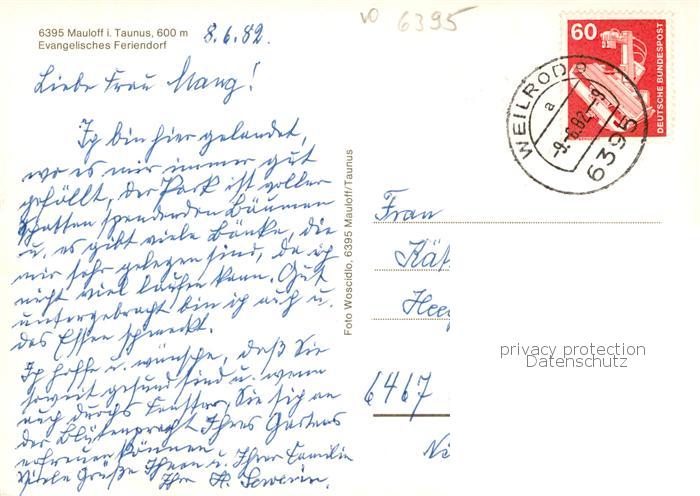 6395 Mauloff i. Taunus, 600 m
Evangelisches Feriendorf
8.6.82.
vo 6395
60
DEUTSCHE BUNDESPOST
WEILROD
a
-9.-6.82-9
6395
Liebe Frau Mang!
Ich bin hier gelandet,
wo es mir immer gut
gefällt, der Park ist voller
schatten spendenden Bäumen
u. es gibt viele Bänke, die
mir sehr gelegen sind, da ich
nicht viel laufen kann. Gut
untergebracht bin ich auch u.
das Essen schmeckt.
Ich hoffe u. wünsche, daß Sie
soweit gesund sind u. wenn
auch durchs Fenster, Sie sich an
der Blütenpracht Ihres Gartens
erfreuen können.
Viele Grüße Ihnen u. Ihrer Familie
Ihre
Foto Woscidlo, 6395 Mauloff/Taunus
Frau
Kät
Hee
6467
privacy protection
Datenschutz